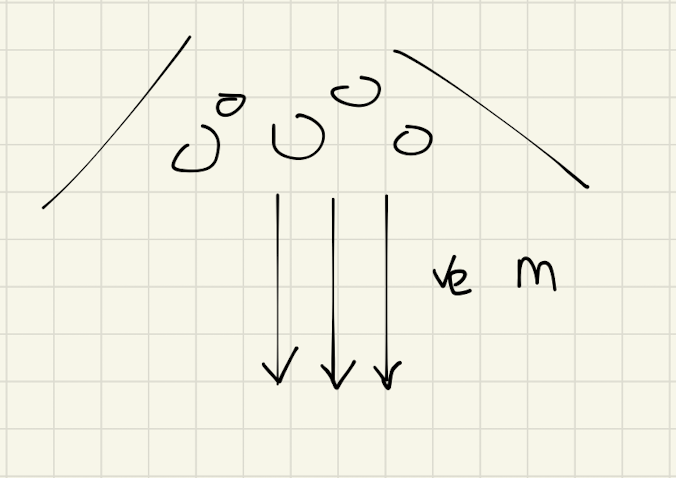 ve m